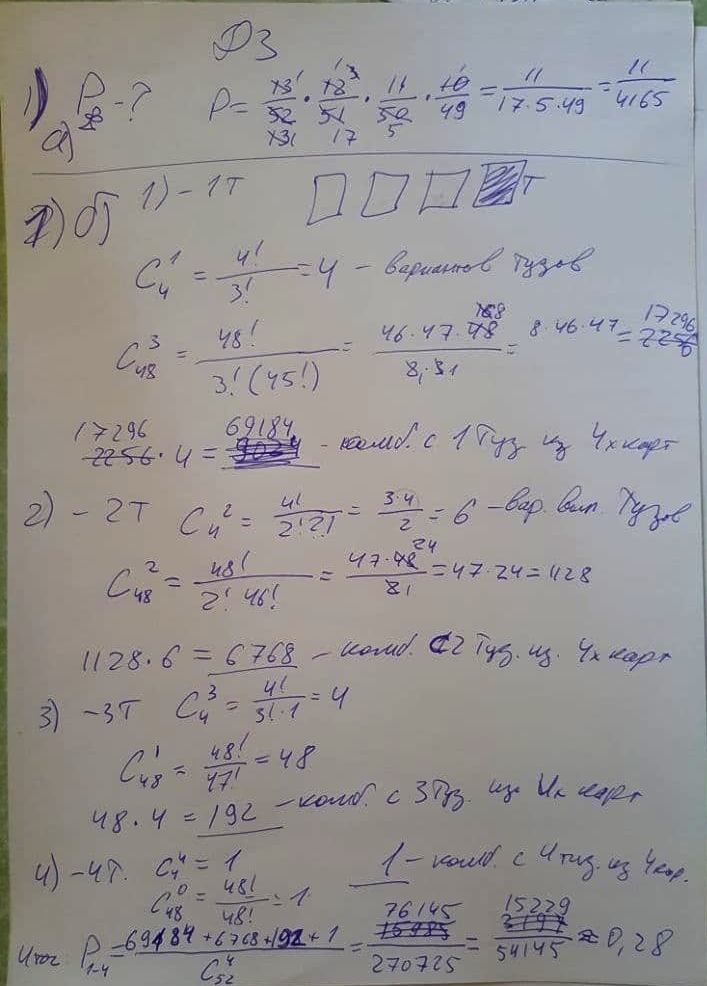 ДЗ
1) P - ? P = 13/52 · 12/51 · 11/50 · 10/49 = 11/(17·5·49) = 11/4165
а)
1) б) 1) - 1Т Т
C₄¹ = 4!/3! = 4 - вариантов тузов
C₄₈³ = 48!/(3!(45!)) = 46·47·48/(2·3) = 8·46·47 = 17296
17296 · 4 = 69184 - комб. с 1 Туз из 4х карт
2) - 2Т C₄² = 4!/(2!2!) = 3·4/2 = 6 - вар. вып. Тузов
C₄₈² = 48!/(2! 46!) = 47·48/2 = 47·24 = 1128
1128·6 = 6768 - комб. с 2 Туз. из. 4х карт
3) - 3Т C₄³ = 4!/(3!·1) = 4
C₄₈¹ = 48!/47! = 48
48·4 = 192 - комб. с 3 Туз. из 4х карт
4) - 4Т. C₄⁴ = 1 1 - комб. с 4 туз. из 4 кар.
C₄₈⁰ = 48!/48! = 1
Итог: P₁₋₄ = (69184 + 6768 + 192 + 1)/C₅₂⁴ = 76145/270725 = 15229/54145 ≈ 0,28